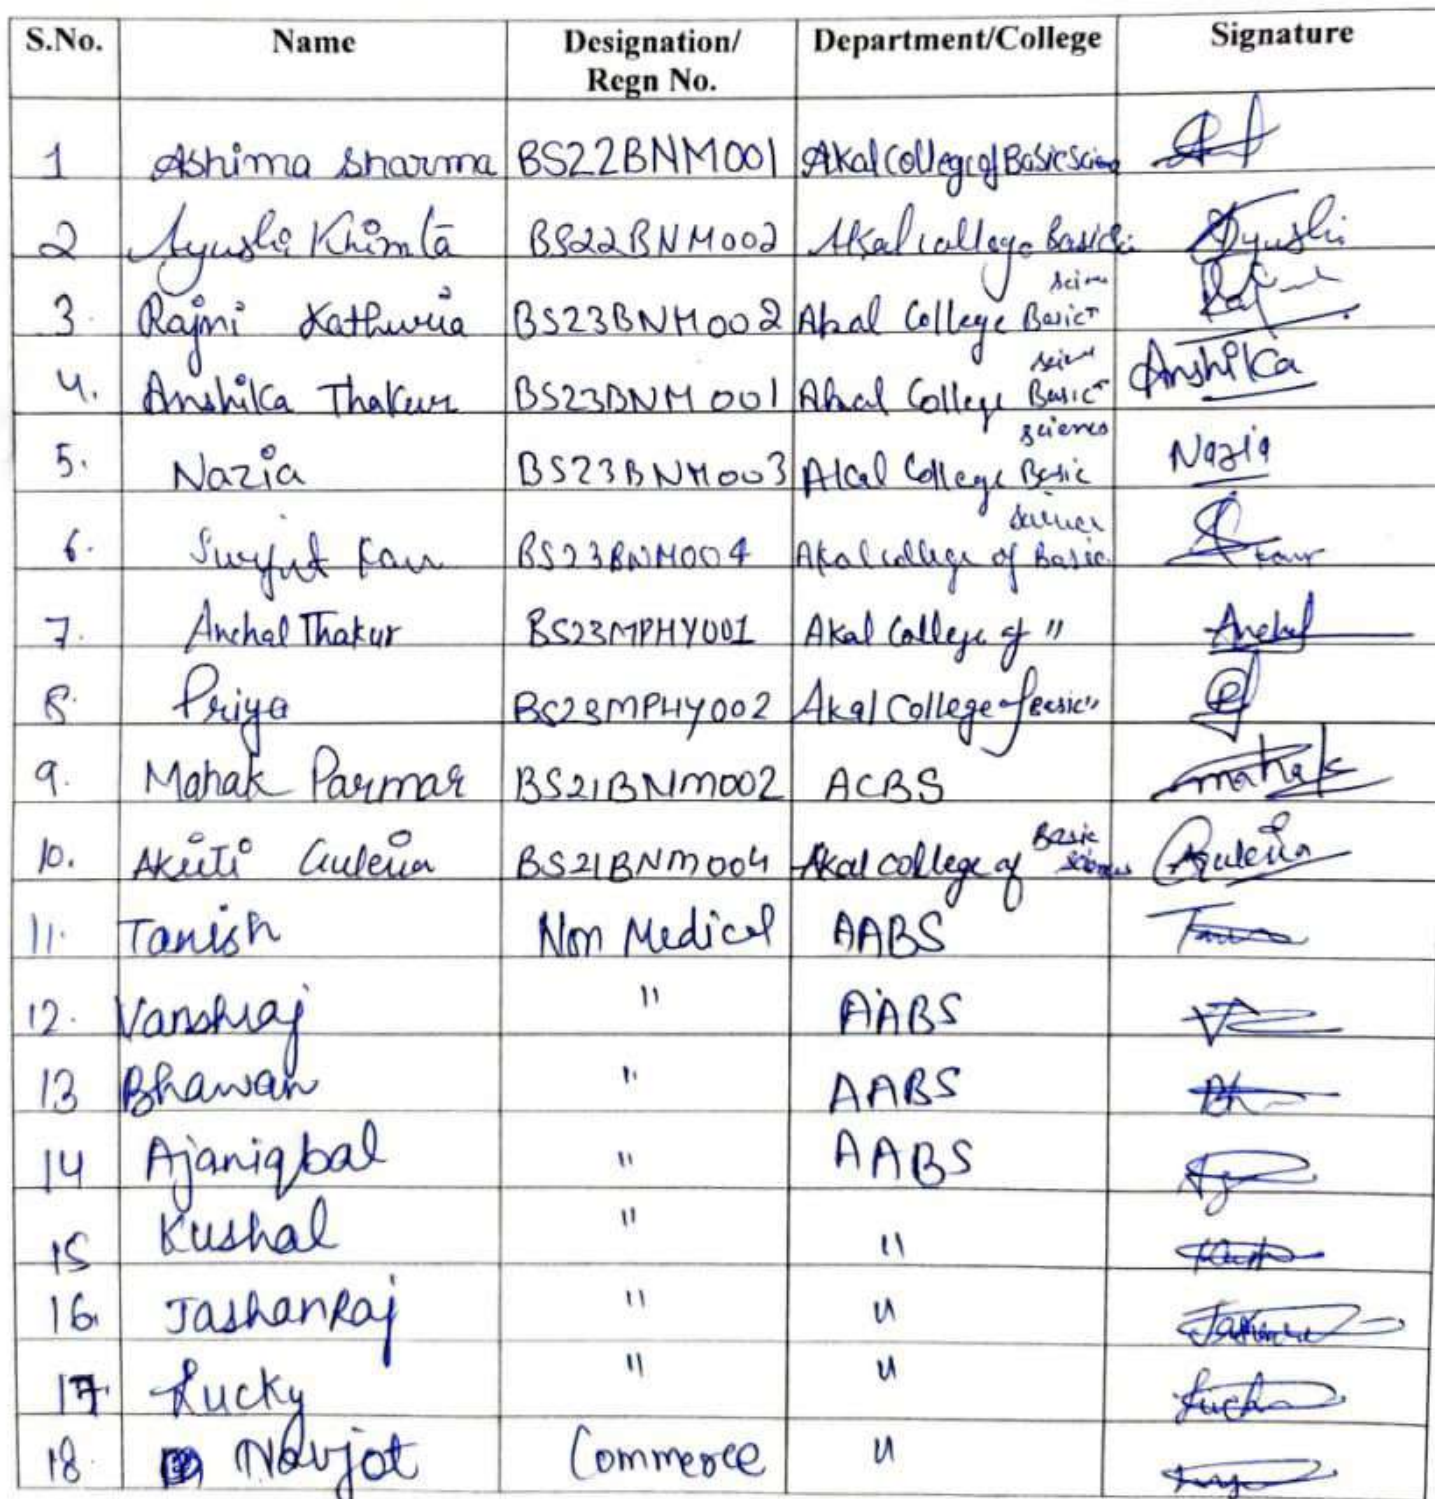 S.No. Name Designation/ Regn No. Department/College Signature
1 Ashima Sharma BS22BNM001 Akal College of Basic Science
2 Ayushi Khimta BS22BNM002 Akal college Basic Ayushi
scien
3. Rajni Kathuria BS23BNM002 Akal College Basic
scien
4. Anshika Thakur BS23BNM001 Akal College Basic Anshika
sciences
5. Nazia BS23BNM003 Akal College Basic Nazia
science
6. Surjit Kaur BS23BNM004 Akal college of Basic. Kaur
7. Anchal Thakur BS23MPHY001 Akal College of " Anchal
8. Priya BS23MPHY002 Akal College of Basic"
9. Mahak Parmar BS21BNM002 ACBS mahak
10. Akriti Guleria BS21BNM004 Akal college of Basic Sciences Guleria
11. Tanish Non Medical AABS
12. Vanshraj " AABS
13 Bhawan " AABS
14 Ajaniqbal " AABS
15 Kushal " "
16. JashanRaj " "
17. Lucky " "
18. Navjot Commerce "